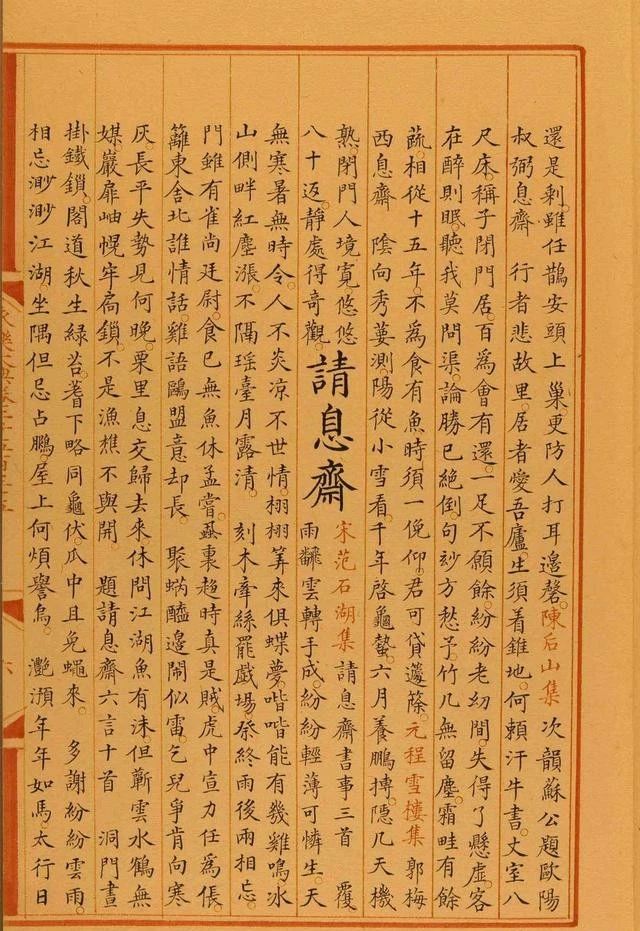 還是剩。雖任鵲安頭上巢。更防人打耳邊磬。陳后山集 次韻蘇公題歐陽
叔弼息齋 行者悲故里。居者愛吾廬。生須着錐地。何頼汗牛書。丈室八
尺床。稱子閉門居。百為會有還。一足不願餘。紛紛老幼間。失得了懸虛。客
在醉則眠。聽我莫問渠。論勝已絕倒。句妙方愁予。竹几無留塵。霜畦有餘
蔬。相從十五年。不為食有魚。時須一俛仰。君可貸蘧蒢。元程雪樓集 郭梅
西息齋 陰向秀葽測。陽從小雪看。千年啓龜蟄。六月養鵬摶。隱几天機
熟。閉門人境寬。悠悠
八十返。靜處得奇觀。
請息齋
宋范石湖集 請息齋書事三首 覆
雨翻雲轉手成。紛紛輕薄可憐生。天
無寒暑無時令。人不炎凉不世情。栩栩筭來俱蝶夢。喈喈能有幾雞鳴。冰
山側畔紅塵漲。不隔瑤臺月露清。 刻木牽絲罷戲場。祭終雨後兩相忘。
門雖有雀尚廷尉。食已無魚休孟嘗。蝨裏趨時真是賊。虎中宣力任為倀。
籬東舍北誰情話。雞語鷗盟意却長。 聚蜹醯邊鬧似雷。乞兒爭肯向寒
灰。長平失勢見何晚。栗里息交歸去來。休問江湖魚有沬。但蘄雲水鶴無
媒。巖扉岫幌牢扃鎖。不是漁樵不與開。 題請息齋六言十首 洞門晝
掛鐵鎖。閣道秋生緑苔。蓍下略同龜伏。瓜中且免蠅來。 多謝紛紛雲雨。
相忘渺渺江湖。坐隅但忌占鵩。屋上何煩譽烏。 灔澦年年如馬。太行日
六